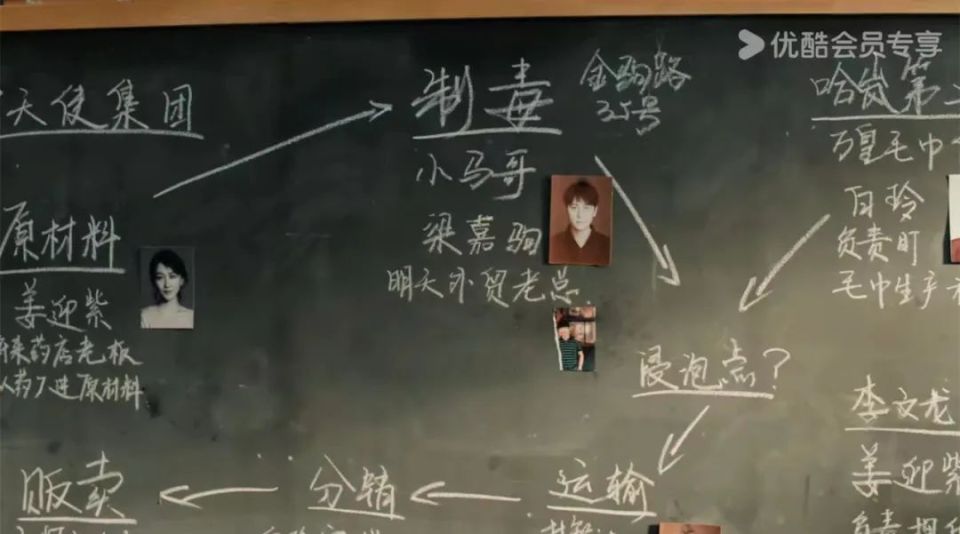 优酷会员专享
天使集团
制毒
金驹路
35号
哈岚第
小马哥
万皇毛巾
白玲
负责盯
毛巾生产
原材料
梁嘉驹
明天外贸老总
姜迎紫
药店老板
药厂进原材料
浸泡点?
李文龙
姜迎紫
贩卖
分销
运输
负责